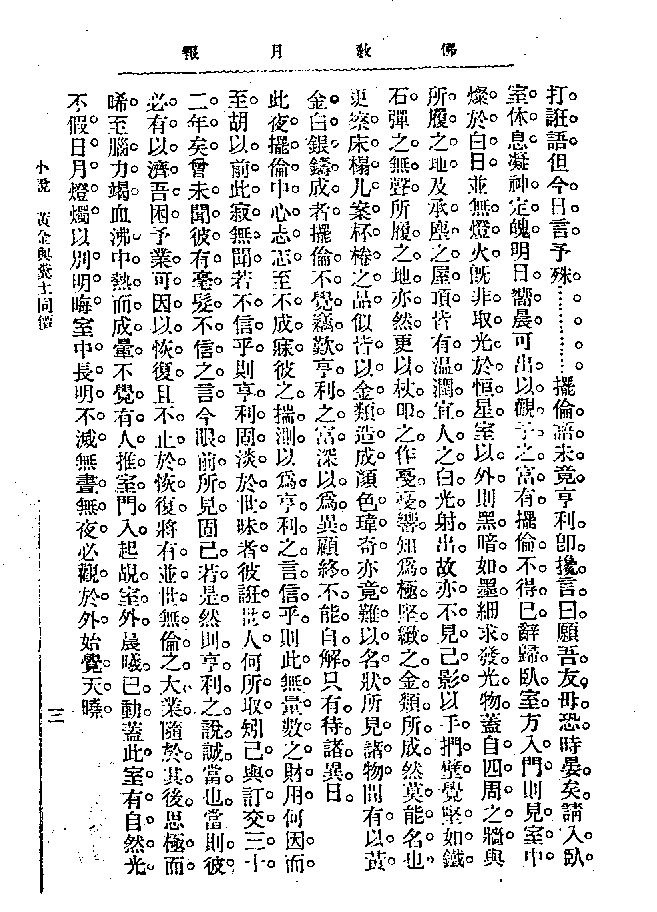 佛教月報
打誑語但今日言予殊…………擺倫語未竟亨利卽攙言曰願吾友毋恐時晏矣請入臥
室休息凝神定魄明日嚮晨可出以觀予之富有擺倫不得已辭歸臥室方入門則見室中
燦於白日並無燈火旣非取光於恒星室以外則黑暗如墨細求發光物蓋自四周之牆與
所履之地及承塵之屋頂皆有温潤宜人之白光射出故亦不見己影以手捫壁覺堅如鐵
石彈之無聲所履之地亦然更以杖叩之作戞戞響知爲極堅緻之金類所成然莫能名也
更察床榻几案杯棬之品似皆以金類造成顏色瑋奇亦竟難以名狀所見諸物間有以黃
金白銀鑄成者擺倫不覺竊歎亨利之富深以爲異顧終不能自解只有待諸異日
此夜擺倫中心忐忑至不成寐彼之揣測以爲亨利之言信乎則此無量數之財用何因而
至胡以前此寂無聞若不信乎則亨利固淡於世味者彼誑世人何所取矧己與訂交三十
二年矣曾未聞彼有毫髮不信之言今眼前所見固已若是然則亨利之說誠當也當則彼
必有以濟吾困予業可因以恢復且不止於恢復將有並世無倫之大業隨於其後思極而
晞至腦力竭血沸中熱而成暈不覺有人推室門入起覘室外晨曦已動蓋此室有自然光
不假日月燈燭以別明晦室中長明不滅無晝無夜必觀於外始覺天曉
小說 黃金與糞土同價
三